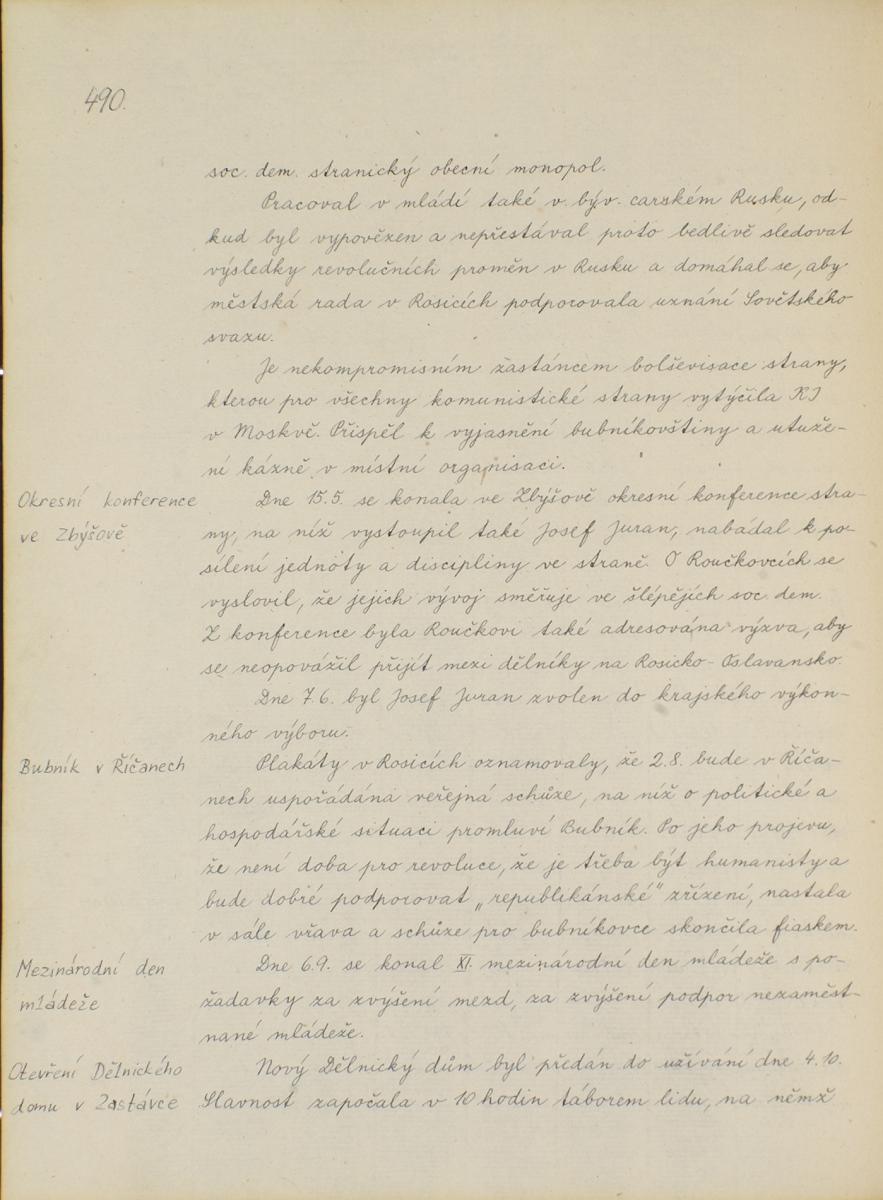 490.
soc. dem. stranický obecní monopol.
Pracoval v mládí také v býv. carském Rusku, od-
kud byl vypovězen a nepřestával proto bedlivě sledovat
výsledky revolučních proměn v Rusku a domáhal se, aby
městská rada v Rosicích podporovala uznání Sovětského
svazu.
Je nekompromisním zastáncem bolševisace strany,
kterou pro všechny komunistické strany vytýčila KI
v Moskvě. Přispěl k vyjasnění bubníkovštiny a utuže-
ní kázně v místní organisaci.
Okresní konference
ve Zbýšově
Dne 15.5. se konala ve Zbýšově okresní konference stra-
ny, na níž vystoupil také Josef Juran, nabádal k po-
sílení jednoty a discipliny ve straně. O Roučkovcích se
vyslovil, že jejich vývoj směřuje ve šlépějích soc. dem.
Z konference byla Roučkovi také adresována výzva, aby
se neopovážil přijít mezi dělníky na Rosicko-Oslavansko.
Dne 7.6. byl Josef Juran zvolen do krajského výkon-
ného výboru.
Bubník v Říčanech
Plakáty v Rosicích oznamovaly, že 2.8. bude v Říča-
nech uspořádána veřejná schůze, na níž o politické a
hospodářské situaci promluví Bubník. Po jeho projevu,
že není doba pro revoluce, že je třeba být humanisty a
bude dobré podporovat „republikánské" zřízení, nastala
v sále vřava a schůze pro bubníkovce skončila fiaskem.
Mezinárodní den
mládeže
Dne 6.9. se konal XI. mezinárodní den mládeže s po-
žadavky za zvýšení mezd, za zvýšení podpor nezaměst-
nané mládeže.
Otevření Dělnického
domu v Zastávce
Nový Dělnický dům byl předán do užívání dne 4.10.
Slavnost započala v 10 hodin táborem lidu, na němž